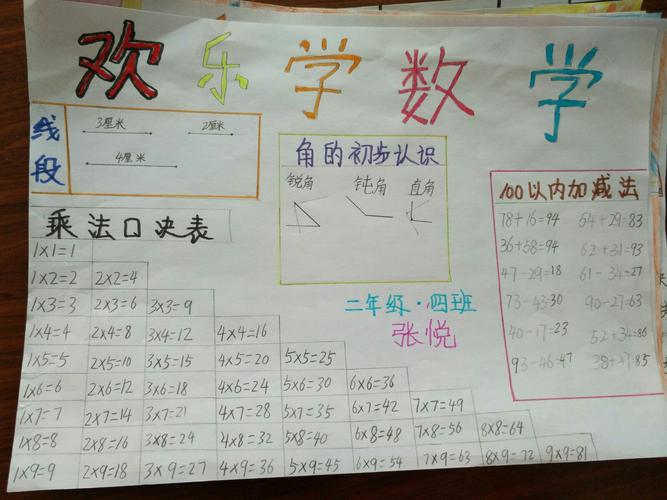 欢乐学数学
线段
3厘米 2厘米
4厘米
角的初步认识
锐角 钝角 直角
100以内加减法
78+16=94 54+29=83
36+58=94 62+31=93
47-29=18 61-34=27
73-43=30 90-27=63
40-17=23 52+34=86
93-46=47 38+37=85
二年级·四班
张悦
乘法口决表
1×1=1
1×2=2 2×2=4
1×3=3 2×3=6 3×3=9
1×4=4 2×4=8 3×4=12 4×4=16
1×5=5 2×5=10 3×5=15 4×5=20 5×5=25
1×6=6 2×6=12 3×6=18 4×6=24 5×6=30 6×6=36
1×7=7 2×7=14 3×7=21 4×7=28 5×7=35 6×7=42 7×7=49
1×8=8 2×8=16 3×8=24 4×8=32 5×8=40 6×8=48 7×8=56 8×8=64
1×9=9 2×9=18 3×9=27 4×9=36 5×9=45 6×9=54 7×9=63 8×9=72 9×9=81